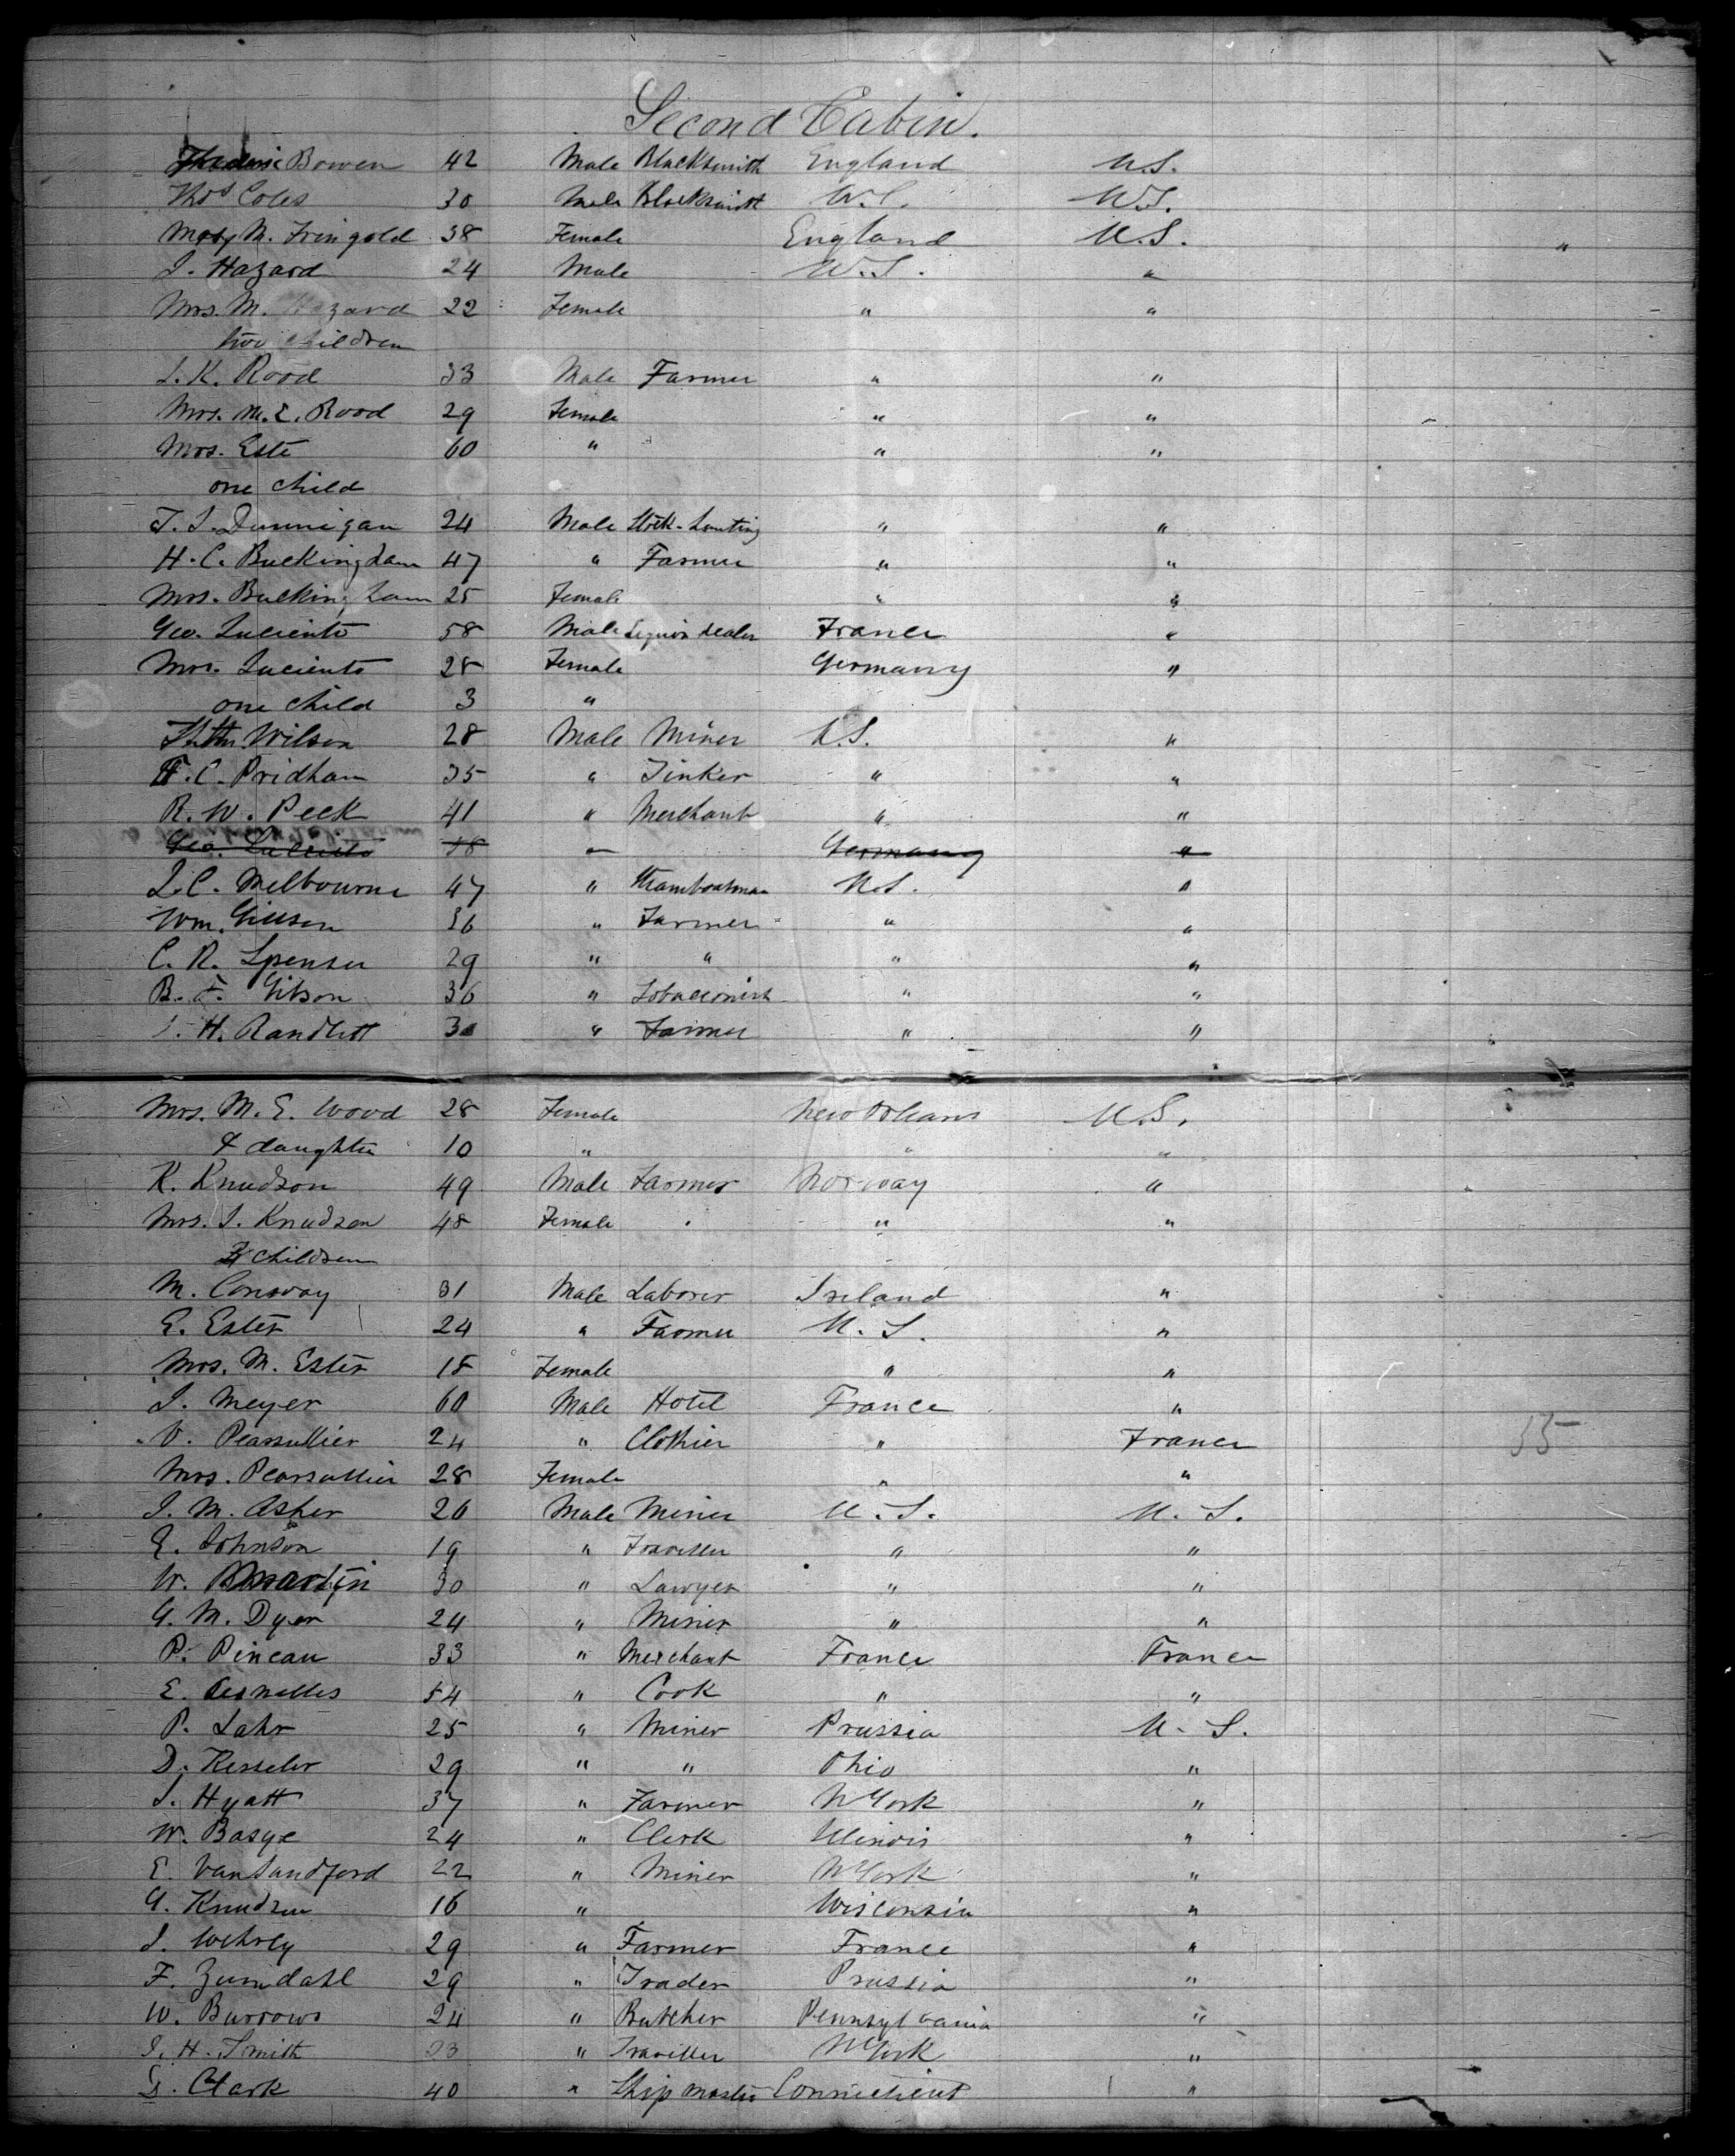 Second Cabin.
Bowen 42 Male Blacksmith England U.S.
Thos Coles 30 Male Blacksmith U.S. U.S.
Mary M. Fringold 38 Female England U.S. "
J. Hazard 24 Male U.S. "
Mrs. M. Hazard 22 Female " "
two children
K. Rood 33 Male Farmer " "
Mrs. M. E. Rood 29 Female " "
Mrs. Este 60 " " "
one child
T. J. Dunnigan 24 Male " "
H. C. Buckingham 47 " Farmer " "
Mrs. Buckingham 25 Female " "
Geo. Luciento 58 Male Liquor dealer France "
Mrs. Luciento 28 Female Germany "
one child 3 "
Wilson 28 Male Miner U.S. "
F. C. Pridham 35 " Tinker " "
R. W. Peek 41 " Merchant " "
Geo. Luciento 58 " Germany "
L. C. Melbourne 47 " Steamboatman U.S. "
Wm. 36 " Farmer " "
C. R. Spenser 29 " " " "
B. F. Gibson 36 " Tobacconist " "
H. Randlett " Farmer " "
Mrs. M. E. Wood 28 Female New Orleans U.S.
& daughter 10 " " "
K. Knudson 49 Male Farmer Norway "
Mrs. J. Knudson 48 Female " "
children
M. Conway 31 Male Laborer Ireland "
E. Ester 24 " Farmer U.S. "
Mrs. M. Ester 18 Female " "
J. Meyer 60 Male Hotel France "
V. Pearsullier 24 " Clothier " France 35
Mrs. Pearsullier 28 Female " "
J. M. Asher 20 Male Miner U.S. U.S.
E. Johnson 19 " Traveller " "
W. 30 " Lawyer " "
G. M. Dyer 24 " Miner " "
P. Pineau 33 " Merchant France France
E. 54 " Cook " "
P. Lahr 25 " Miner Prussia U.S.
D. Kesseler 29 " " Ohio "
J. Hyatt 37 " Farmer N York "
W. Basye 24 " Clerk Illinois "
E. Van Sandford 22 " Miner N York "
G. Knudson 16 " Wisconsin "
J. Wehrly 29 " Farmer France "
F. Zumdahl 29 " Trader Prussia "
W. Burrows 24 " Butcher Pennsylvania "
J. H. Smith 23 " Traveller N York "
G. Clark 40 " Ship master Connecticut "